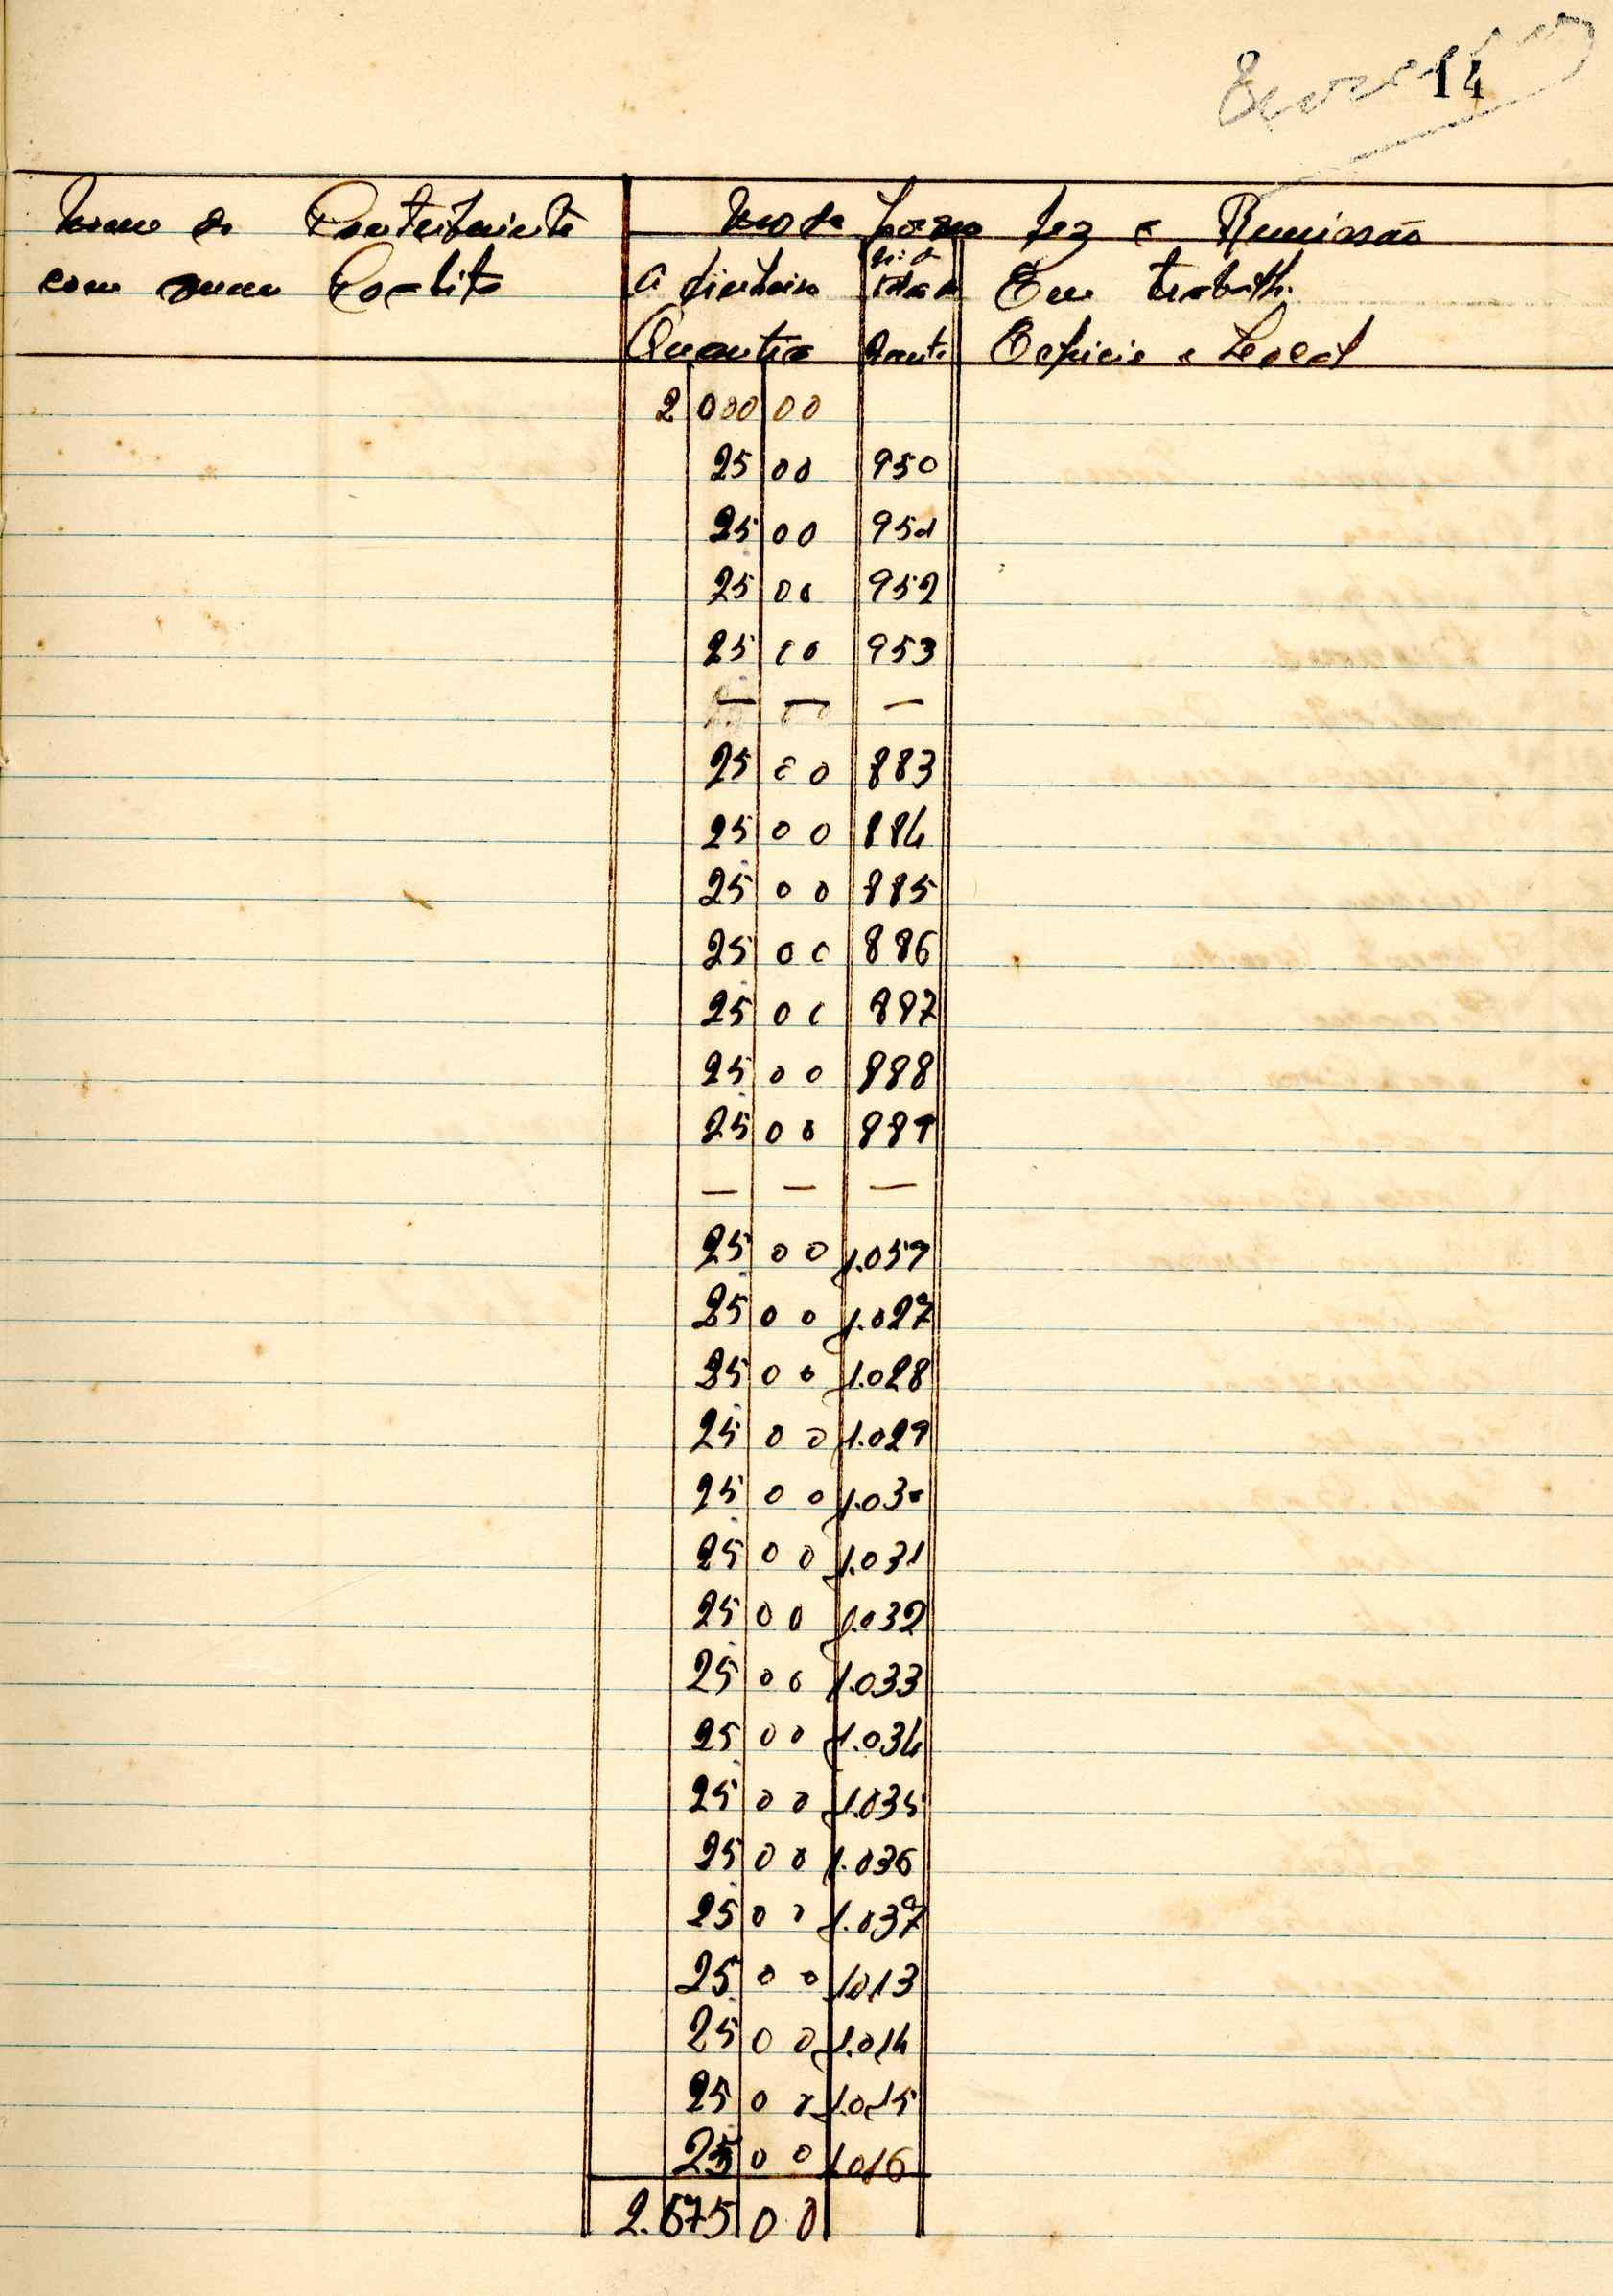 14
Nome do Contribuinte
com quem Coabita
Modo porque fez a Remissão
A dinheiro
Quantia
Em trabalho
Oficio e Local
2 000 00
25 00 950
25 00 951
25 00 952
25 00 953
— — —
25 00 883
25 00 884
25 00 885
25 00 886
25 00 887
25 00 888
25 00 889
— — —
25 00 1.059
25 00 1.027
25 00 1.028
25 00 1.029
25 00 1.030
25 00 1.031
25 00 1.032
25 00 1.033
25 00 1.034
25 00 1.035
25 00 1.036
25 00 1.037
25 00 1013
25 00 1.014
25 00 1.015
25 00 1016
2.675 00